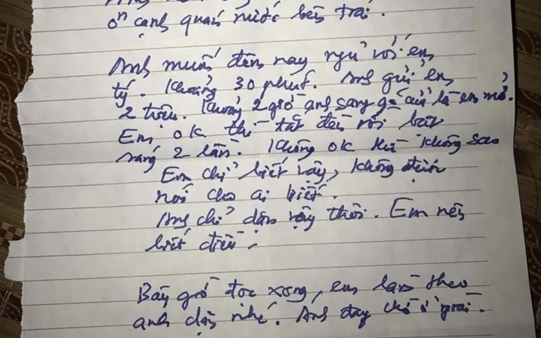 ở cạnh quán nước bên trái.
Anh muốn đêm nay ngủ với em
tý. Khoảng 30 phút. Anh gửi em
2 triệu. Khoảng 2 giờ anh sang gõ cửa là em mở.
Em ok thì tắt đèn rồi bật
sáng 2 lần. Không ok thì không sao
Em chỉ biết vậy, không được
nói cho ai biết.
Anh chỉ dặn vậy thôi. Em nên
biết điều.
Bây giờ đọc xong, em làm theo
anh dặn nhé. Anh đang chờ ở